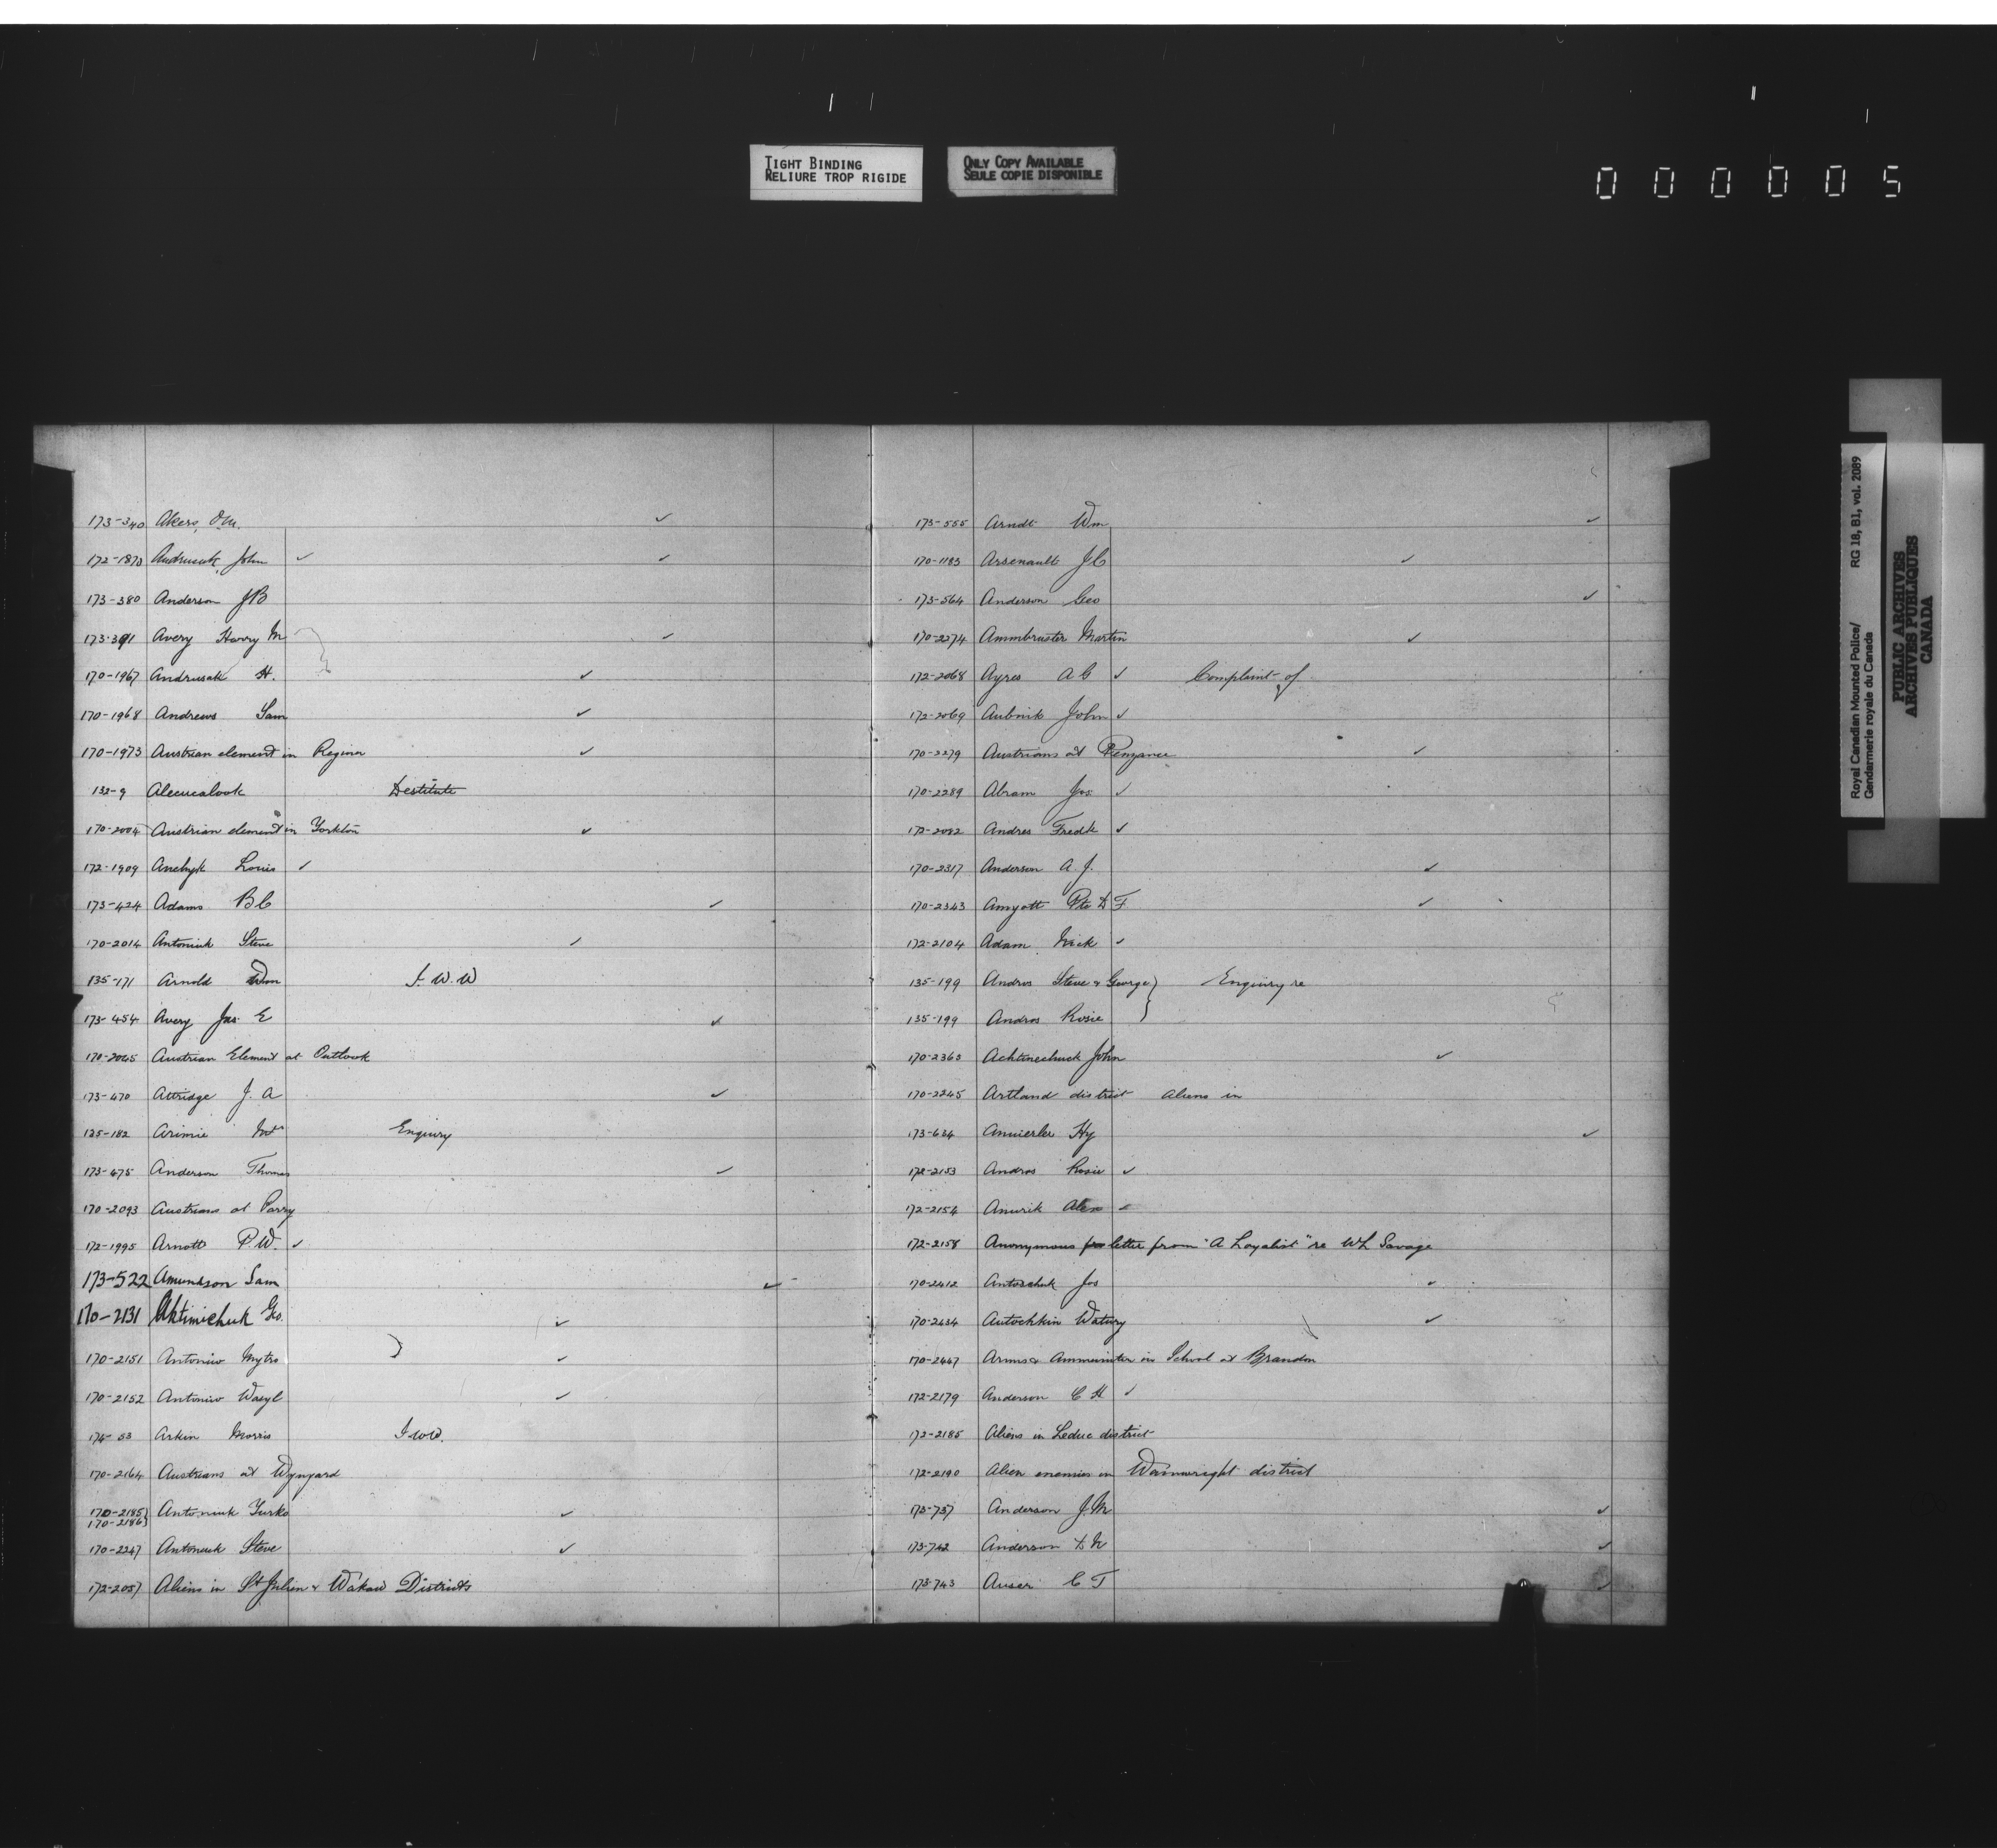 TIGHT BINDING
RELIURE TROP RIGIDE
ONLY COPY AVAILABLE
SEULE COPIE DISPONIBLE
000005
173-340 Akers, O.M. ✓
172-1873 Andruseak, John ✓ ✓
173-380 Anderson J B
173-391 Avery Harry M ✓
170-1967 Andrusak H. ✓
170-1968 Andrews Sam ✓
170-1973 Austrian element in Regina ✓
132-9 Alecucalook Destitute
170-2004 Austrian element in Yorkton ✓
172-1909 Anchyk Louis ✓
173-424 Adams B C ✓
170-2014 Antoniuk Steve ✓
135-171 Arnold Wm I. W. W
173-454 Avery Jas. E ✓
170-2045 Austrian Element at Outlook
173-470 Attridge J. A ✓
135-182 Arimie Mrs Enquiry
173-475 Anderson Thomas ✓
170-2093 Austrians at Parry
172-1995 Arnott P. W. ✓
173-522 Amundson Sam ✓
170-2131 Aktimichuk Geo. ✓
170-2151 Antoniw Mytro ✓
170-2152 Antoniw Wasyl ✓
174-53 Arkin Morris I W W.
170-2164 Austrians at Wynyard
170-2185}
170-2186} Antoniuk Yurko ✓
170-2247 Antoniuk Steve ✓
172-2057 Aliens in St Julien & Wakaw Districts
173-555 Arndt Wm ✓
170-1183 Arsenault J C ✓
173-564 Anderson Geo ✓
170-2274 Ammbruster Martin ✓
172-2068 Ayres A C ✓ Complaint of
172-2069 Aubnik John ✓
170-2279 Austrians at Penzance ✓
170-2289 Abram Jos. ✓
172-2082 Andres Fredk ✓
170-2317 Anderson A. J. ✓
170-2343 Amyott Pte D F. ✓
172-2104 Adam Nick ✓
135-199 Andros Steve & George } Enquiry re
135-199 Andros Rosie }
170-2363 Achtinechuck John ✓
170-2245 Artland district aliens in
173-634 Amierler Hy ✓
172-2153 Andros Rosie ✓
172-2154 Anurik Alex ✓
172-2158 Anonymous letter from "A Loyalist" re W L Savage
170-2412 Antoschuk Jos ✓
170-2434 Autochkin Watury ✓
170-2447 Arms & Ammunition in School at Brandon
172-2179 Anderson C H ✓
172-2185 Aliens in Leduc district
172-2190 Alien enemies in Wainwright district
173-737 Anderson J. M ✓
173-742 Anderson D N ✓
173-743 Auser C T ✓
Royal Canadian Mounted Police/
Gendarmerie royale du Canada
RG 18, B1, vol. 2089
PUBLIC ARCHIVES
ARCHIVES PUBLIQUES
CANADA